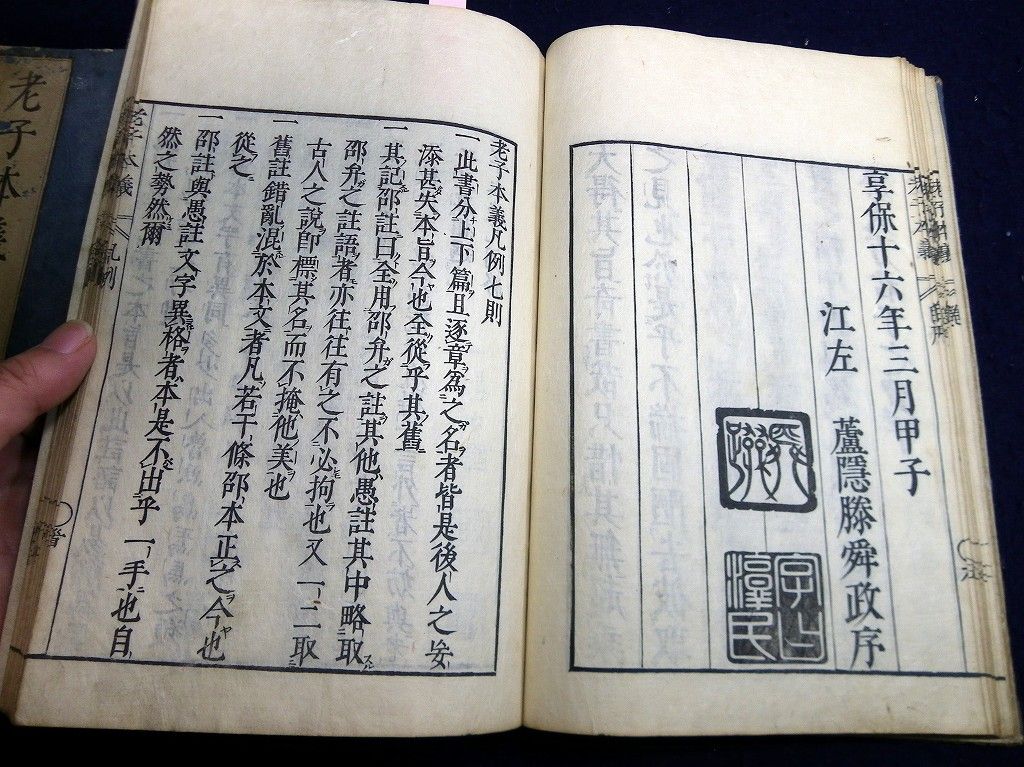 享保十六年三月甲子
江左　蘆隱滕舜政序
老子本義凡例七則
一此書分上下篇且逐章爲之名者皆是後人之妄
添甚失本旨今也全從乎其舊
一其記邵註曰全用邵弁之註其他愚註其中略取
邵弁之註語者亦往往有之不必拘也又一二取
古人之說卽標其名而不掩他美也
一舊註錯亂混於本文者凡若干條邵本正之今也
從之
一邵註與愚註文字異格者本是不出乎一手也自
然之勢然爾
老子本義　凡例
老子本義